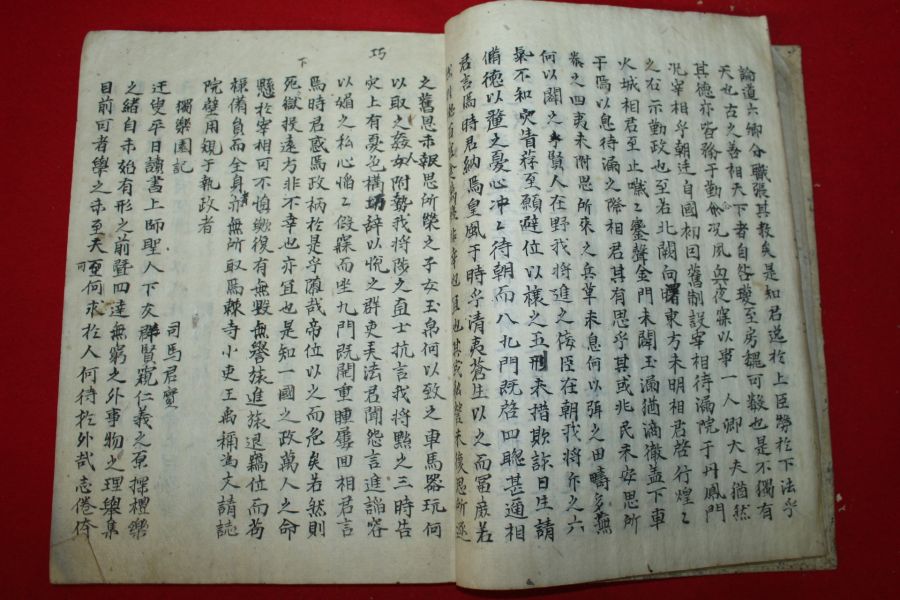 論道六卿分職張其敎矣是知君逸於上臣勞於下法乎
天也古之善相天下者自咎夔至房魏可數也是不獨有
其德亦皆務于勤爾况夙興夜寐以事一人卿大夫猶然
况宰相乎朝廷自國初因舊制設宰相待漏院于丹鳳門
之右示勤政也至若北闕向曙東方未明相君啓行煌〻
火城相君至止噦〻鑾聲金門未闢玉漏猶滴徹盖下車
于焉以息待漏之際相君其有思乎其或兆民未安思所
泰之四夷未附思所來之兵革未息何以弭之田疇多蕪
何以闢之賢人在野我將進之侫臣在朝我將斥之六
氣不和灾眚荐至願避位以禳之五刑未措欺詐日生請
俻德以釐之憂心冲〻待朝而入九門既啓四聰甚邇相
君言焉時君納焉皇風于時乎清夷蒼生以之而富庶若
也其或私讎未復思所逐
巧
下
之舊恩未報思所榮之子女玉帛何以致之車馬器玩何
以取之奸以附勢我將陟之直士抗言我將黜之三時告
灾上有憂色構辞以悅之群吏弄法君聞怨言進謟容
以媚之私心慆〻假寐而坐九門既開重瞳屢回相君言
焉時君惑焉政柄於是乎隳哉帝位以之而危矣若然則
死獄投遠方非不幸也亦宜也是知一國之政萬人之命
懸於宰相可不愼歟復有無毁無譽旅進旅退竊位而苟
祿俻員而全身者亦無所取焉棘寺小吏王禹稱爲文請誌
院壁用規于執政者
獨樂園記
司馬君實
迂叟平日讀書上師聖人下友群賢窺仁義之原探禮樂
之緖自未始有形之前曁四達無窮之外事物之理舉集
目前可者學之未至夫可何求於人何待於外哉志倦